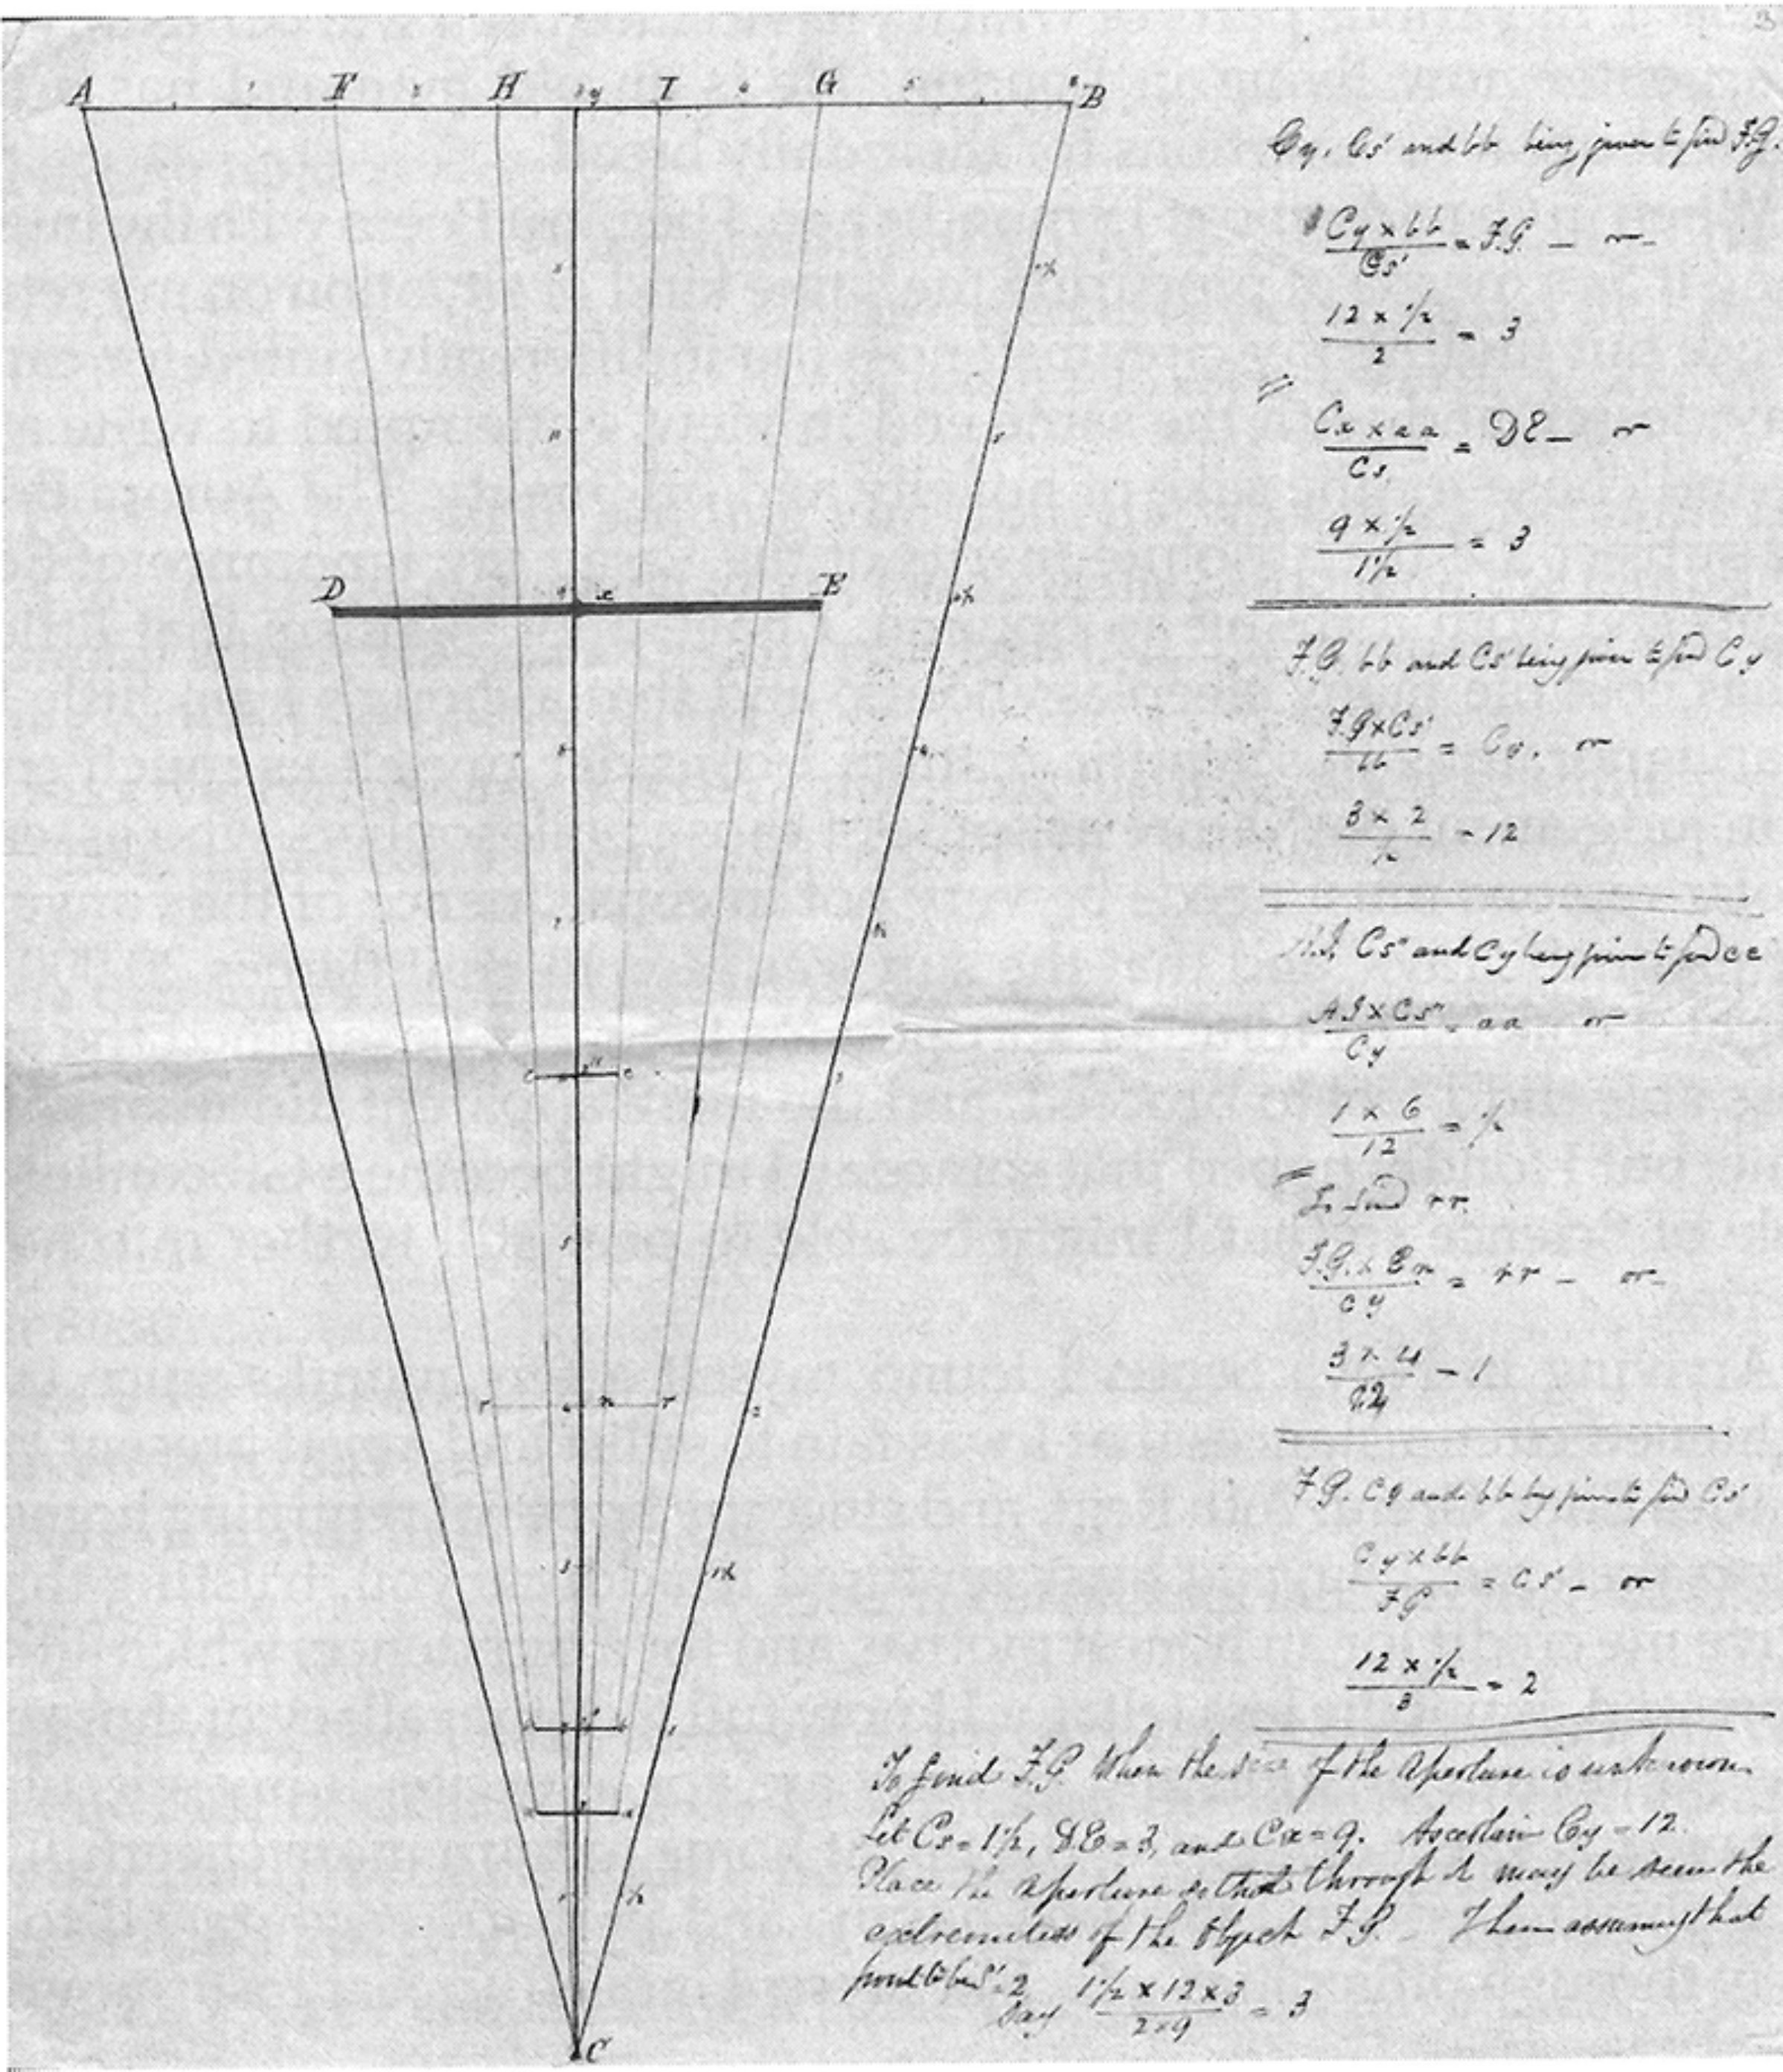 A F H y I G B
Cy, Cs' and bb being given to find F.G.
Cy x bb / Cs' = F.G. — or —
12 x 1/2 / 2 = 3
Cx x aa / Cs = DE — or
9 x 1/2 / 1 1/2 = 3
D 9 x E
F.G. bb and Cs' being given to find Cy
F.G x Cs' / bb = Cy, or
3 x 2 / 1/2 = 12
Cs" and Cy being given to find cc
x Cs" / Cy = aa or
1 x 6 / 12 = 1/2
c s" c
To find rr.
F.G. x Cn / Cy = rr — or —
3 x 4 / 12 — 1
r n r
F.G. Cy and bb being given to find Cs'
Cy x bb / FG = Cs' — or
12 x 1/2 / 3 = 2
To find F.G. When the size of the Aperture is unknown.
Let Cs = 1 1/2, DE = 3, and Cx = 9. Ascertain Cy = 12.
Place the aperture so that through it may be seen the
extremities of the Object F.G. Then assuming that
point to be S' = 2
Say 1 1/2 x 12 x 3 / 2 x 9 = 3
C